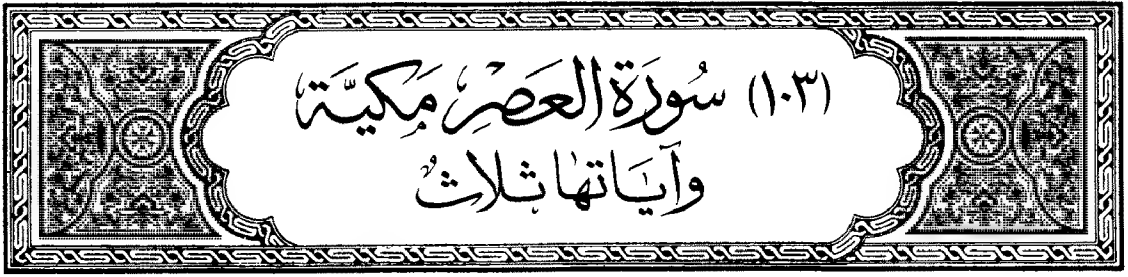 (١٠٣) سُورَةُ العَصْرِ مَكِيَّة
وَآيَاتهَا ثَلَاثٌ